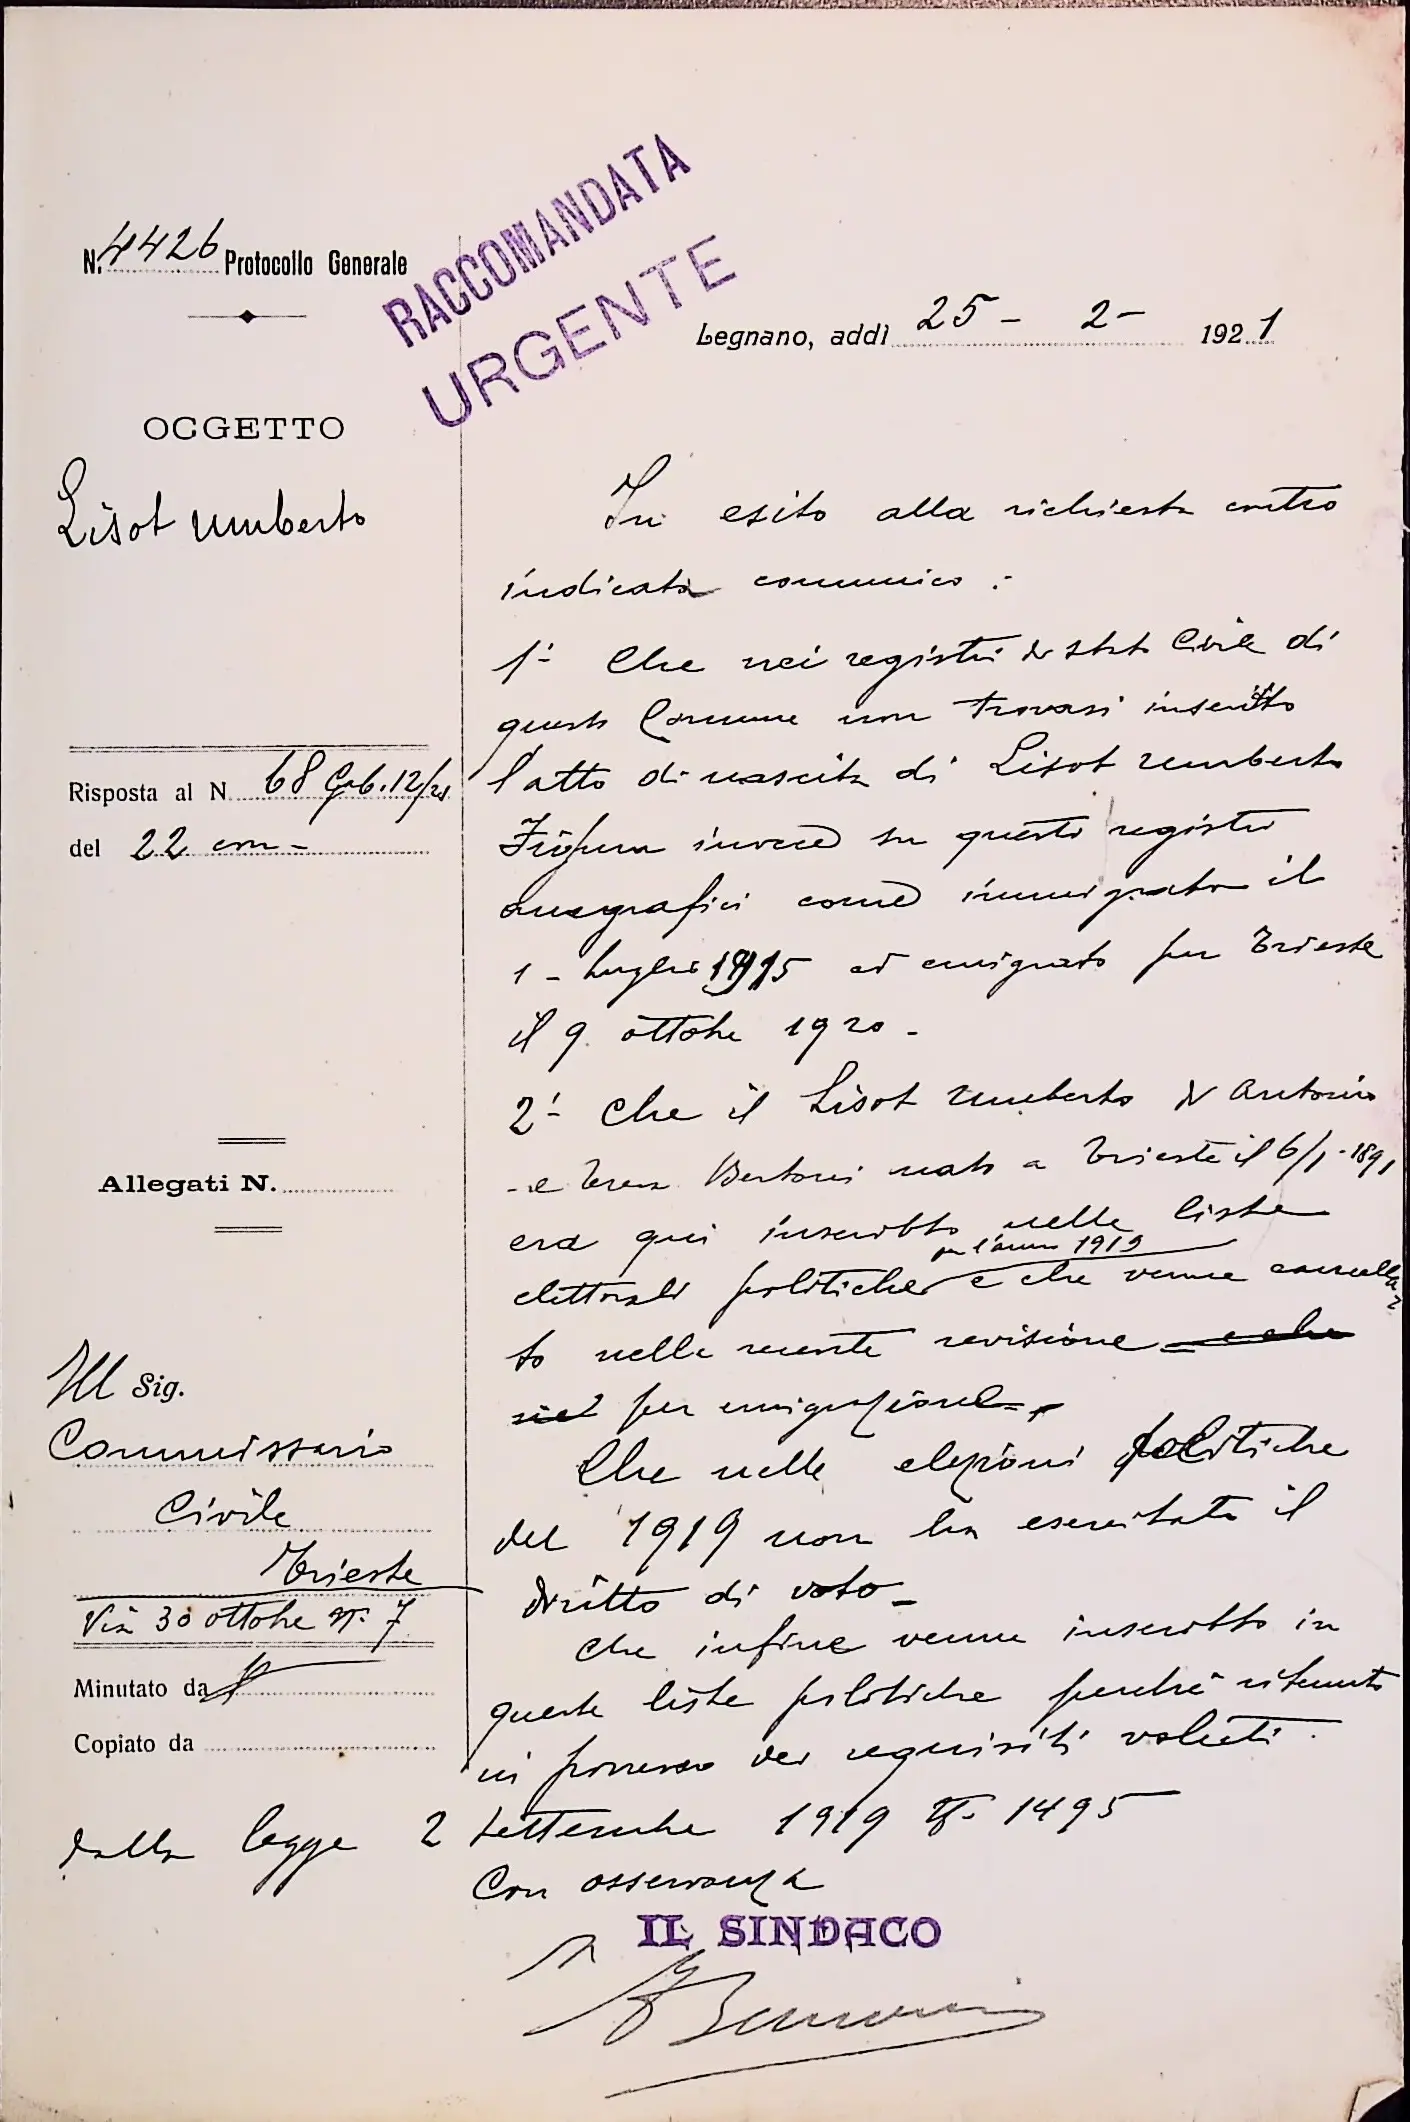 N. 4426 Protocollo Generale
RACCOMANDATA
URGENTE
Legnano, addì 25 - 2 - 1921
OGGETTO
Lisot Umberto
Risposta al N. 68 Gab. 12/21
del 22 corr -
Allegati N.
Ill Sig.
Commissario
Civile
Trieste
Via 30 ottobre N. 7
Minutato da
Copiato da
In esito alla richiesta contro
indicata comunico :
1° Che nei registri di stato Civile di
questo Comune non trovasi inscritto
l'atto di nascita di Lisot Umberto
Figura invece su questi registri
anagrafici come immigrato il
1 - Luglio 1915 ed emigrato per Trieste
il 9 ottobre 1920 -
2° Che il Lisot Umberto di Antonio
- e Teresa Bertoni nato a Trieste il 6/1 - 1891
era qui inscritto nelle liste
per l'anno 1919
elettorali politiche e che venne cancella
to nella recente revisione e che
per emigrazione -
Che nelle elezioni politiche
del 1919 non ha esercitato il
diritto di voto -
Che infine venne inscritto in
queste liste politiche perchè ritenuto
in possesso dei requisiti voluti
dalla legge 2 Settembre 1919 N. 1495
Con osservanza
IL SINDACO